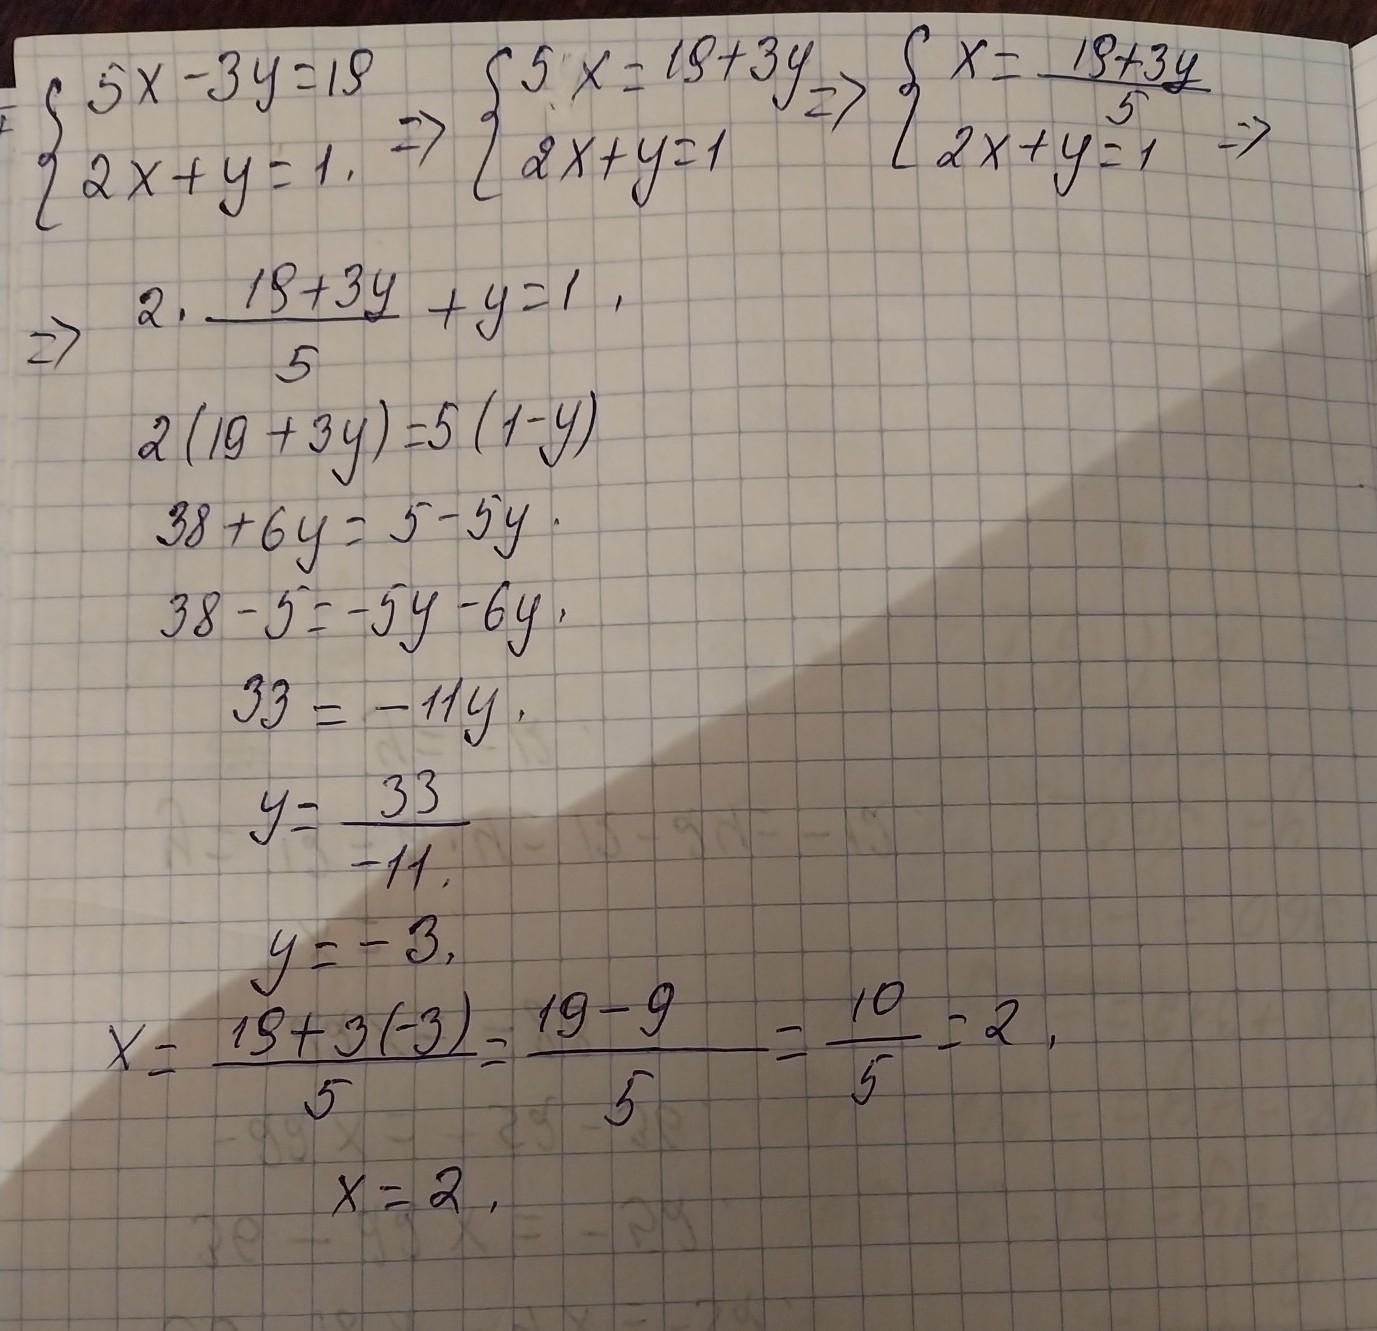 {5x-3y=19 2x+y=1. => {5x=19+3y 2x+y=1 => {x=(19+3y)/5 2x+y=1 =>
=> 2·(19+3y)/5+y=1.
2(19+3y)=5(1-y)
38+6y=5-5y.
38-5=-5y-6y.
33=-11y.
y=33/-11.
y=-3.
x=(19+3(-3))/5=(19-9)/5=10/5=2.
x=2.